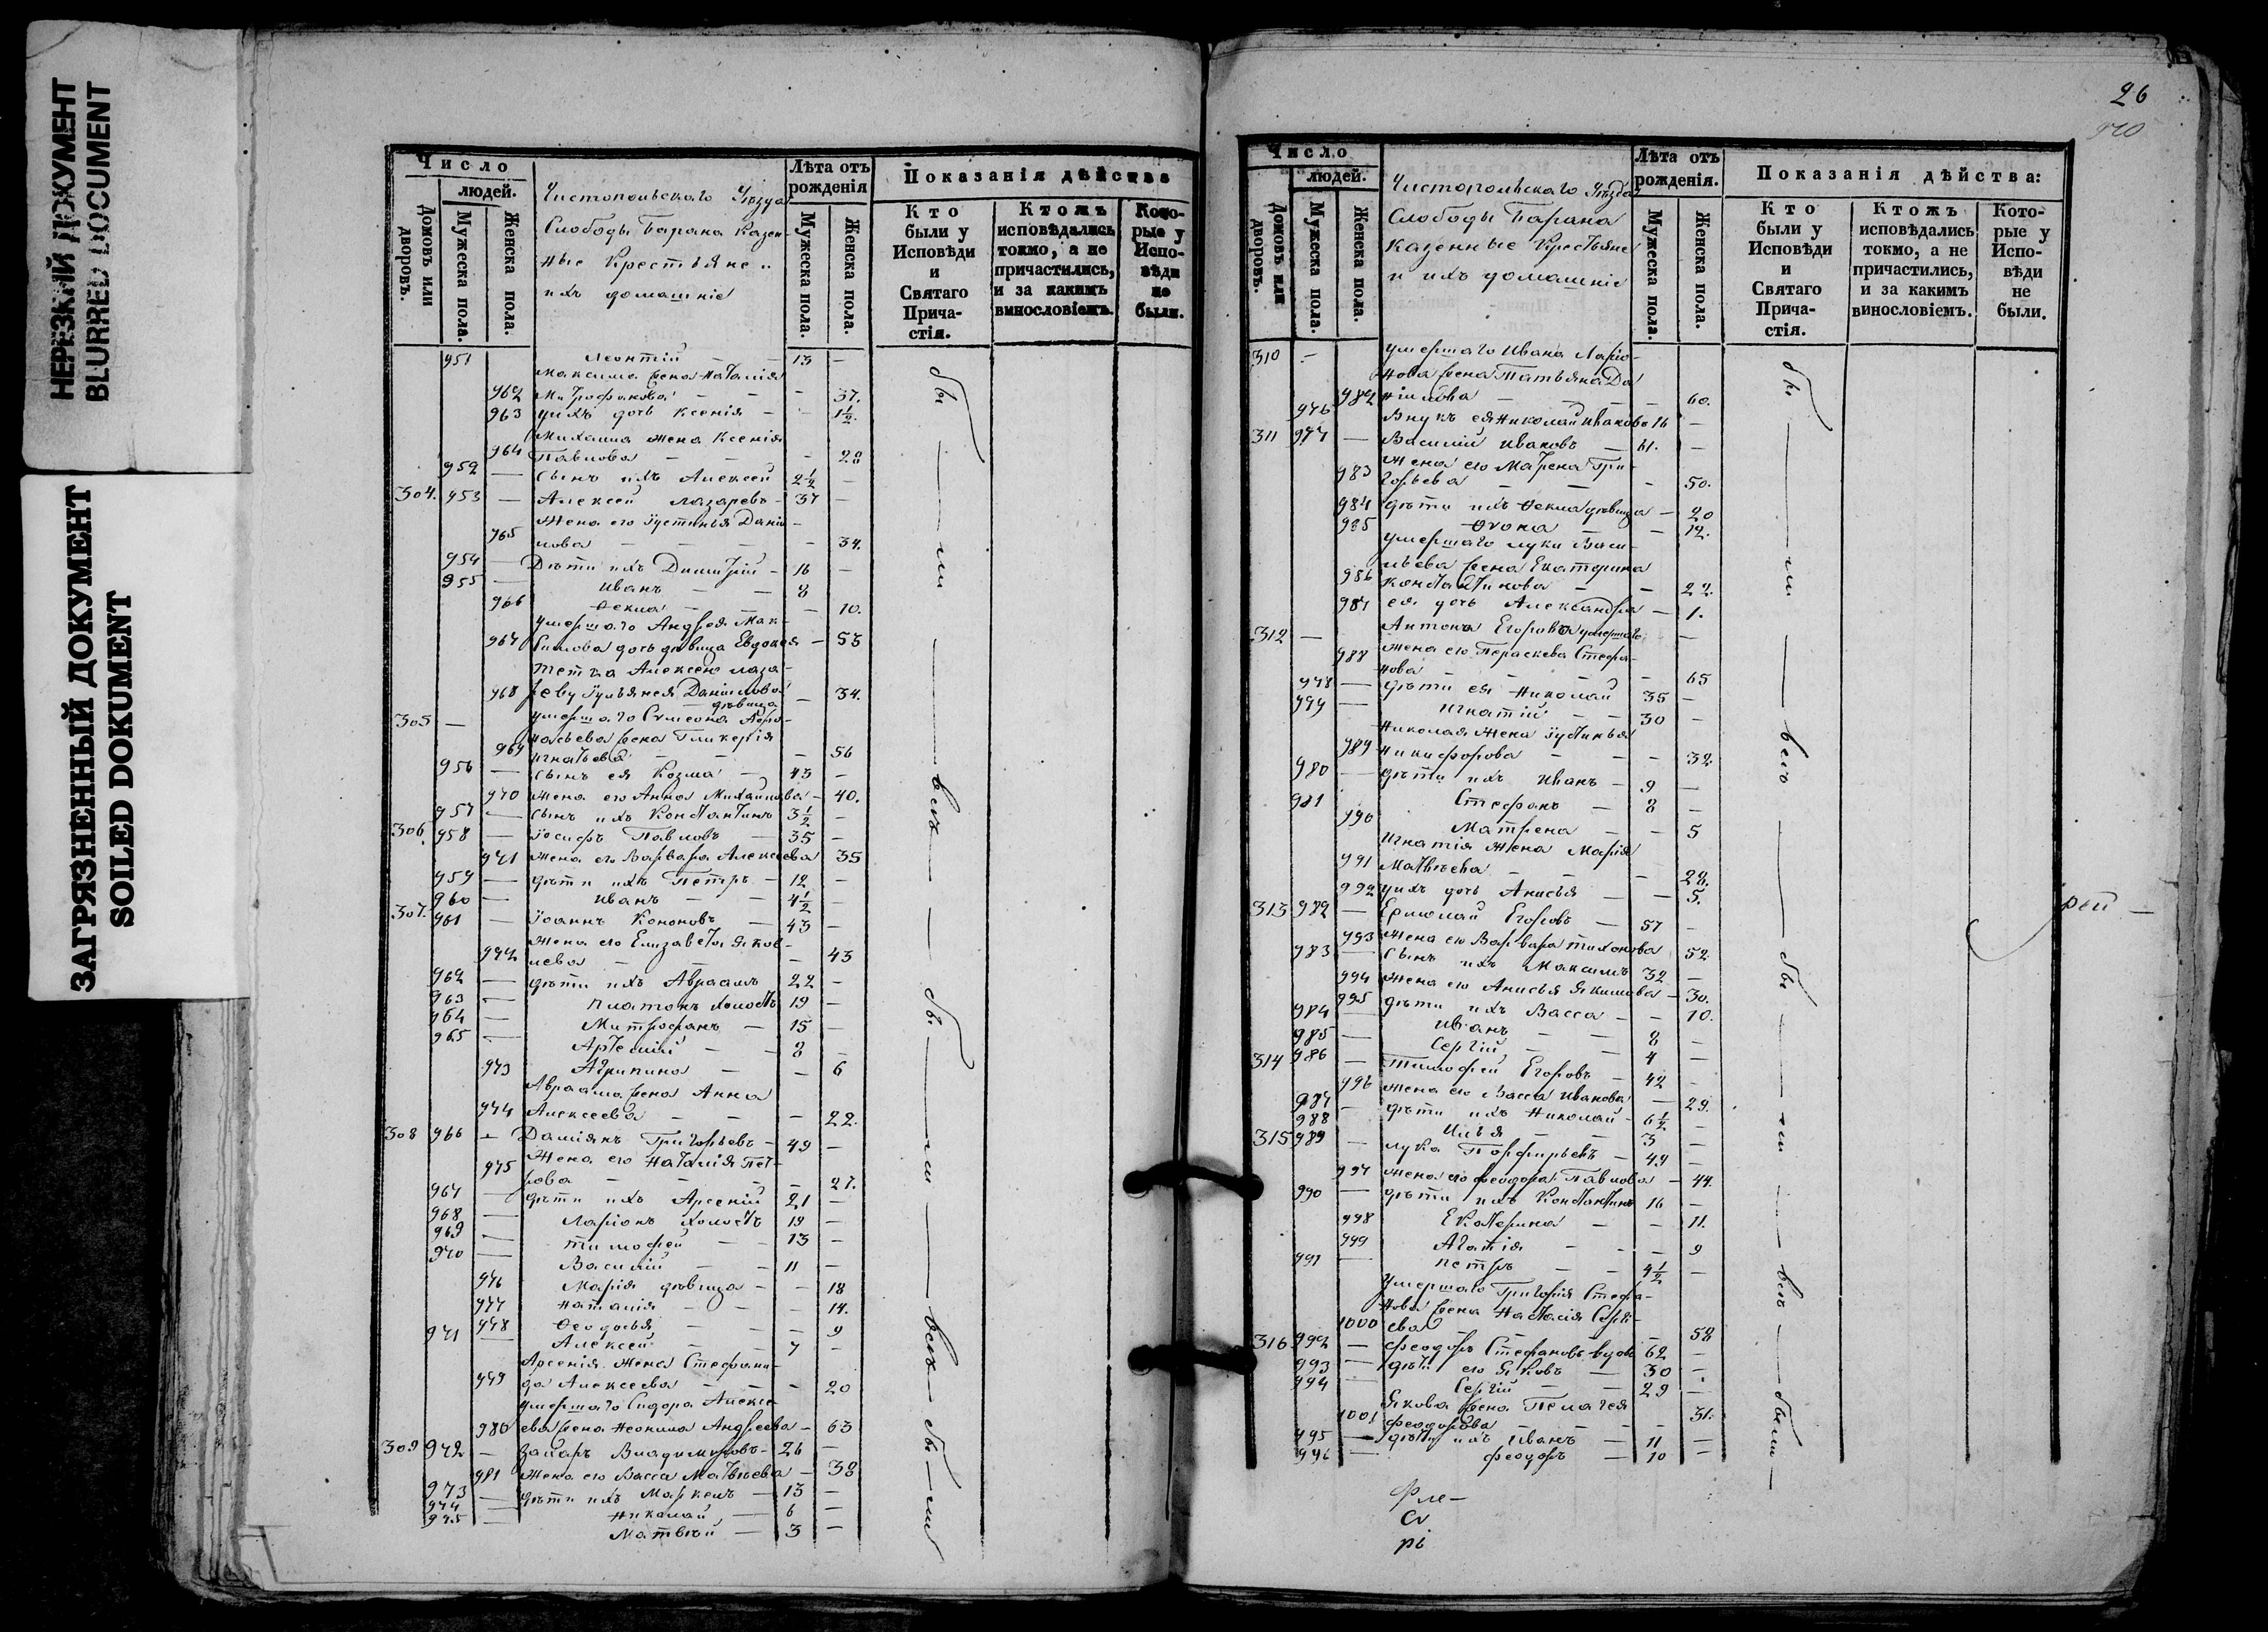 НЕРЕЗКИЙ ДОКУМЕНТ
BLURRED DOCUMENT
ЗАГРЯЗНЕННЫЙ ДОКУМЕНТ
SOILED DOKUMENT
Число
людей.
Домовъ или дворовъ.
Мужеска пола.
Женска пола.
Чистопольскаго Уѣзда
Слободы Барана Казен-
ные Крестьяне и
ихъ домашніе
Лѣта отъ рожденія
Мужеска пола.
Женска пола.
Показанія дѣйства
Кто были у Исповѣди и Святаго Прича-стія.
Ктожъ исповѣдались токмо, а не причастились, и за какимъ винословіемъ.
Кото-рые у Испо-вѣди не были.
951 Леонтій — 13 —
Максима жена Наталія
962 Митрофанова — — 37.
963 ихъ дочь Ксенія — 1½.
Михаила жена Ксенія
964 Павлова — — 28
952 — Сынъ ихъ Алексей 2½ —
304. 953 — Алексей Лазаревъ — 37 —
Жена его Іустинья Дани-
965 лова — — 34.
954 — Дѣти ихъ Димитрій — 16 —
955 — Иванъ — 8
966 Ѳекла — — 10.
умершаго Андрея Мак-
967 симова дочь дѣвица Евдокея — 53
тетка Алексею Лаза-
968 реву Іульянея Данилова — 34.
дѣвица
305 — умершаго Симеона Афо-
насьева жена Гликерія
969 Игнатьева — — 56
956 — Сынъ ея Козма — 43 —
970 Жена его Анна Михайлова — 40.
957 — Сынъ ихъ Константинъ 3½ —
306. 958 — Іосифъ Павловъ — 35 —
971 Жена его Варвара Алексеева 35
959 — дѣти ихъ Петръ — 12 —
960 — Иванъ — 4½ —
307. 961 — Іоаннъ Кононовъ — 43 —
Жена его Елизавета Яков-
972 лева — — 43
962 — дѣти ихъ Авраамъ 22 —
963 — Платонъ холостъ 19 —
964 — Митрофанъ — 15 —
965 — Артемій — 8 —
973 Агрипина — — 6
Авраама жена Анна
974 Алексеева — — 22.
308 966 — Даміянъ Григорьевъ — 49 —
Жена его Наталія Пет-
975 рова — — 27.
967 — дѣти ихъ Арсеній 21 —
968 — Ларіонъ холостъ 19 —
969 — Тимофей — 13 —
970 — Василій — 11 —
976 Марія дѣвица — — 18
977 Наталія — — 14.
978 Ѳеодосья — — 9
971 — Алексей — 7 —
Арсенія жена Стефани-
979 да Алексеева — — 20
умершаго Сидора Алексе-
980 ева жена Неонила Андреева — 63
309 972 — Захаръ Владимировъ — 26 —
981 Жена его Васса Матвѣева — 38
973 — дѣти ихъ Маркелъ — 13 —
974 — Николай — 6 —
975 — Матвѣй — 3 —
бы — ли — всѣ — бы — ли — всѣ — бы — ли
26
Число
людей.
Домовъ или дворовъ.
Мужеска пола.
Женска пола.
Чистопольскаго Уѣзда
Слободы Барана
казенные Крестьяне
и ихъ домашніе
Лѣта отъ рожденія.
Мужеска пола.
Женска пола.
Показанія дѣйства:
Кто были у Исповѣди и Святаго Прича-стія.
Ктожъ исповѣдались токмо, а не причастились, и за какимъ винословіемъ.
Кото-рые у Испо-вѣди не были.
310 — умершаго Ивана Ларіо-
нова жена Татьяна Да-
982 ніилова — — 60.
976 Внукъ ея Николай Ивановъ 16 —
311 977 — Василій Ивановъ — 61. —
Жена его Матрена Гри-
983 горьева — — 50.
984 дѣти ихъ Ѳекла дѣвица — 20
985 — 12.
умершаго Луки Васи-
льева жена Екатерина
986 Константинова — — 22.
987 ея дочь Александра — 1.
312 — Антона Егорова умершаго —
988 жена его Параскева Стефа-
нова — — 65
978 — дѣти ея Николай 35 —
979 — Игнатій — 30 —
Николая жена Іустинья
989 Никифорова — — 32.
980 — дѣти ихъ Иванъ — 9 —
981 Стефанъ — 8 —
990 Матрена — — 5
Игнатія жена Марія
991 Матвѣева — — 28.
992 ихъ дочь Анисья — — 5.
313 982 — Ермолай Егоровъ — 57 —
993 Жена его Варвара Тихонова 52.
983 — Сынъ ихъ Максимъ 32 —
994 Жена его Анисья Якимова — 30.
995 дѣти ихъ Васса — — 10.
984 — Иванъ — 8 —
985 — Сергій — 4 —
314 986 — Тимофей Егоровъ — 42 —
996 Жена его Васса Иванова — 29.
987 — дѣти ихъ Николай — 6½ —
988 Илья — 3 —
315 989 — Лука Порфирьевъ — 49 —
997 Жена его Феодора Павлова — 44.
990 — дѣти ихъ Константинъ 16 —
998 Екатерина — — 11.
999 Агафія — — 9
991 — Петръ — 4½ —
Умершаго Григорія Стефа-
нова жена Наталія Серге-
1000 ева — — 58
316 992 — Феодоръ Стефановъ вдовъ 62 —
993 — дѣти его Яковъ — 30 —
994 — Сергій — 29 —
Якова жена Пелагея
1001 Феодорова — — 31.
995 — дѣти ихъ Иванъ — 11 —
996 — Феодоръ — 10 —
бы — ли — всѣ — бы — ли — всѣ — были —
рей —